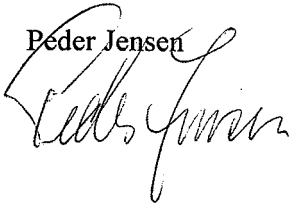 Peder Jensen
Peder Jensen